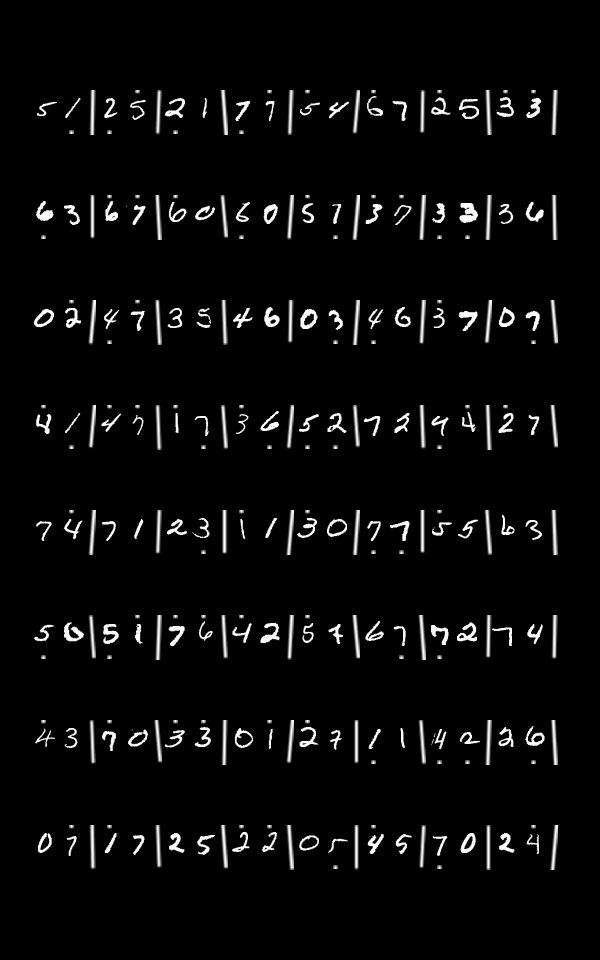 5 1 | 2 5 | 2 1 | 7 7 | 5 4 | 6 7 | 2 5 | 3 3 |
6 3 | 6 7 | 6 0 | 6 0 | 5 7 | 3 7 | 3 3 | 3 6 |
0 2 | 4 7 | 3 5 | 4 6 | 0 3 | 4 6 | 3 7 | 0 7 |
4 1 | 4 7 | 1 7 | 3 6 | 5 2 | 7 2 | 4 4 | 2 7 |
7 4 | 7 1 | 2 3 | 1 1 | 3 0 | 7 7 | 5 5 | 6 3 |
5 0 | 5 1 | 7 6 | 4 2 | 5 4 | 6 7 | 7 2 | 7 4 |
4 3 | 7 0 | 3 3 | 0 1 | 2 7 | 1 1 | 4 2 | 2 6 |
0 7 | 1 7 | 2 5 | 2 2 | 0 5 | 4 5 | 7 0 | 2 4 |